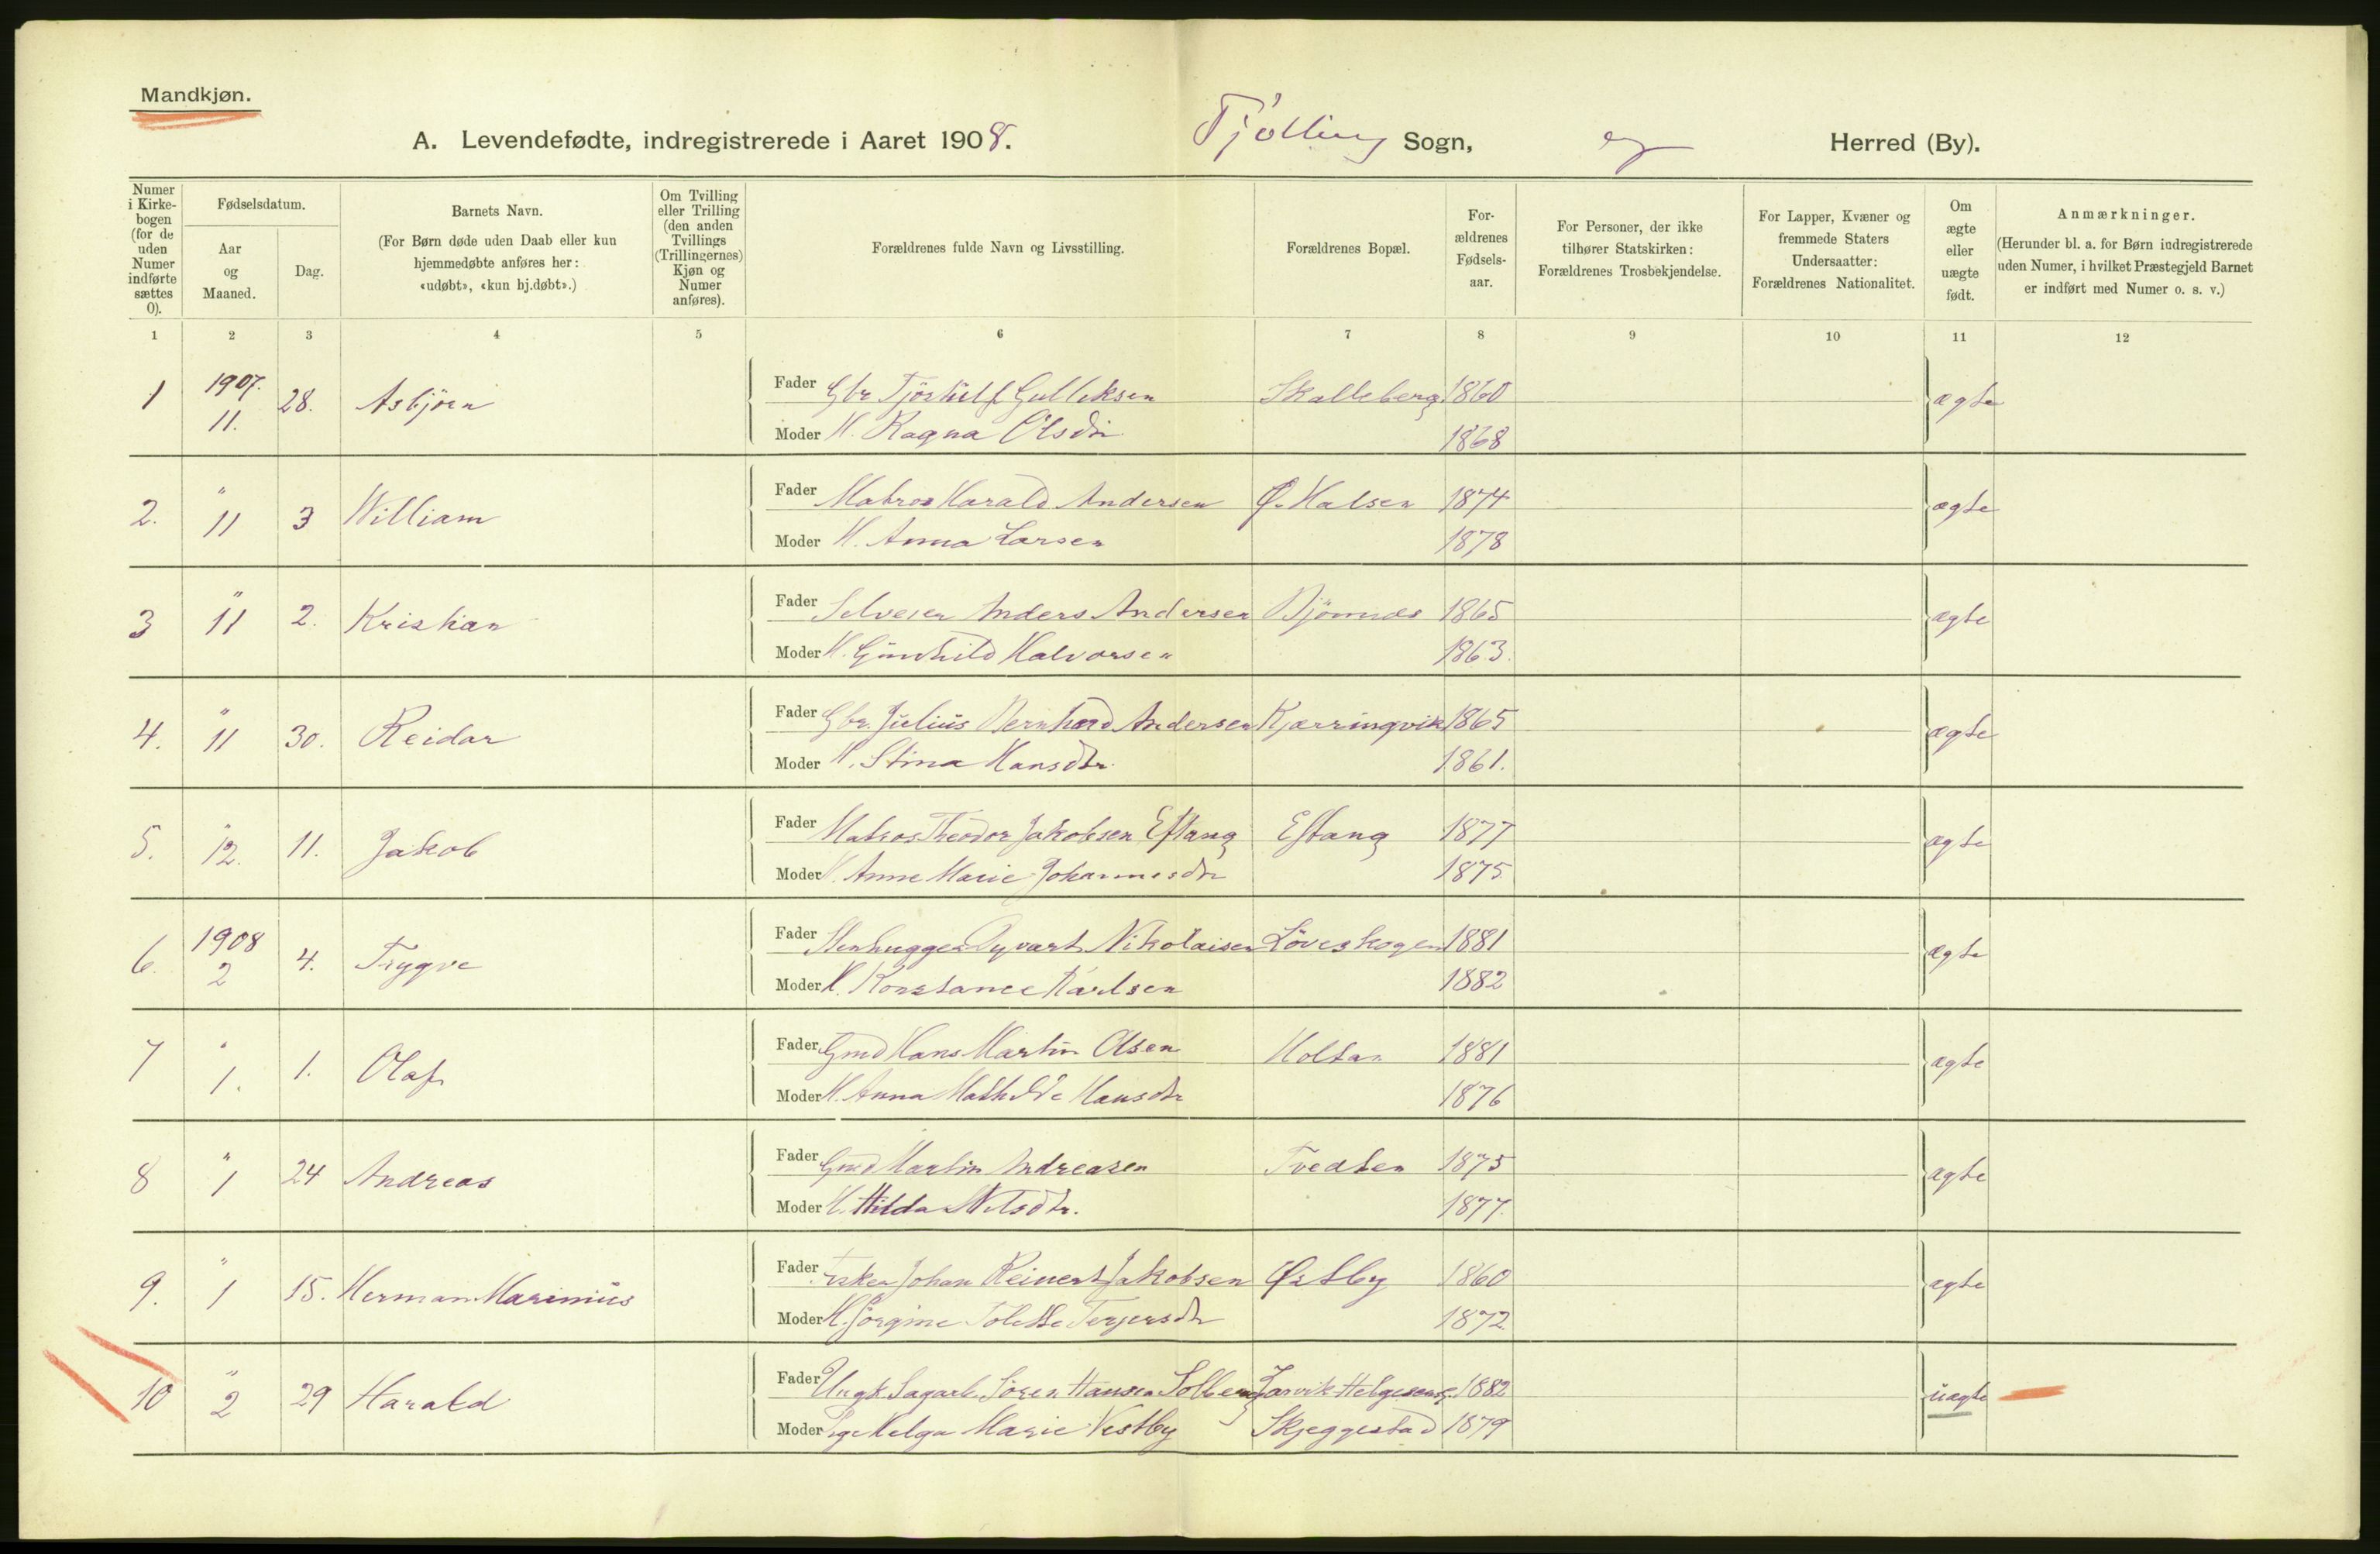 Mandkjøn.
A. Levendefødte, indregistrerede i Aaret 1908. Tjølling Sogn, Herred (By).
Numer i Kirkebogen (for de uden Numer indførte sættes 0).
Fødselsdatum.
Aar og Maaned.
Dag.
Barnets Navn.
(For Børn døde uden Daab eller kun hjemmedøbte anføres her: «udøbt», «kun hj.døbt».)
Om Tvilling eller Trilling (den anden Tvillings (Trillingernes) Kjøn og Numer anføres).
Forældrenes fulde Navn og Livsstilling.
Forældrenes Bopæl.
Forældrenes Fødselsaar.
For Personer, der ikke tilhører Statskirken: Forældrenes Trosbekjendelse.
For Lapper, Kvæner og fremmede Staters Undersaatter: Forældrenes Nationalitet.
Om ægte eller uægte født.
Anmærkninger.
(Herunder bl. a. for Børn indregistrerede uden Numer, i hvilket Præstegjeld Barnet er indført med Numer o. s. v.)
1 2 3 4 5 6 7 8 9 10 11 12
1 1907. 11. 28. Asbjørn Fader Gbr Gulleksen Skalleberg 1860 ægte
Moder H. Ragna Olsdtr 1868
2. " 11 3 William Fader Matros Harald Andersen Ø. Halsen 1874 ægte
Moder H. Anna Larsen 1878
3 " 11 2. Kristian Fader Selveier Anders Andersen Bjønnes 1865 ægte
Moder H. Gunhild Halvorsen 1863.
4. " 11 30. Reidar Fader Gbr. Julius Bernhard Andersen Kjærringvik 1865 ægte
Moder H. Stina Hansdtr. 1861.
5. " 12. 11. Jakob Fader Matros Theodor Jakobsen Eftang Eftang 1877 ægte
Moder H. Anne Marie Johannesdtr 1875
6. 1908 2 4. Trygve Fader Stenhugger Nikolaisen Løveskogen 1881 ægte
Moder H. Konstance Karlsen 1882
7 " 1. 1. Olaf Fader Gmd Hans Martin Olsen Holtan 1881 ægte
Moder H. Anna Mathilde Hansdtr 1876
8 " 1 24 Andreas Fader Gmd Martin Andreasen Tvedten 1875 ægte
Moder H. Hilda Nilsdtr. 1877.
9. " 1 15. Herman Marinius Fader Fisker Johan Reinert Jakobsen Østby 1860 ægte
Moder H. Jørgine Tolette Terjersdtr 1872
10 " 2 29 Harald Fader Ungk. Sagarb. Søren Hansen Solberg Larvik Helgesensg. 1882 uægte
Moder Pge Helga Marie Vestby Skjeggestad 1879